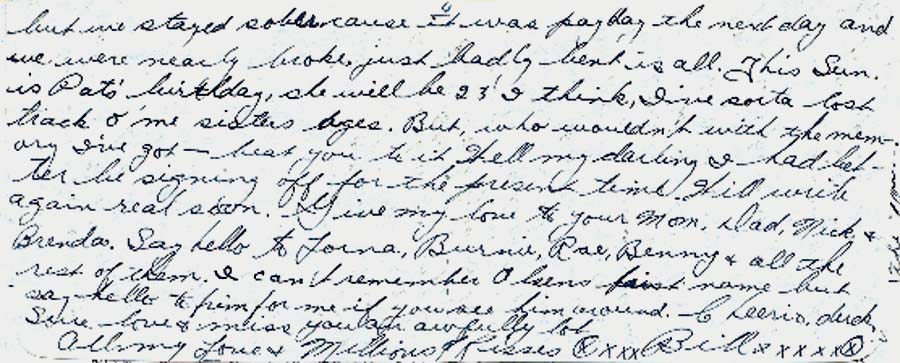 but we stayed sober cause it was payday the next day and
we were nearly broke, just badly bent is all. This Sun.
is Pats' birthday, she will be 23 I think, I've sorta lost
track o' me sisters ages. But, who wouldn't with the mem-
ory I've got – beat you to it. Well my darling I had bet-
ter be signing off for the present time. Will write
again real soon. Give my love to your Mom, Dad, Nick, &
Brenda. Say hello to Lorna, Burnie, Rae, Benny & all the
rest of them. I can't remember Olsens first name but
say hello to him for me if you see him around. Cheerio, duck,
Sure love & miss you an awfully lot
All my Love & Millions of Kisses XXXX Bill x x x x X